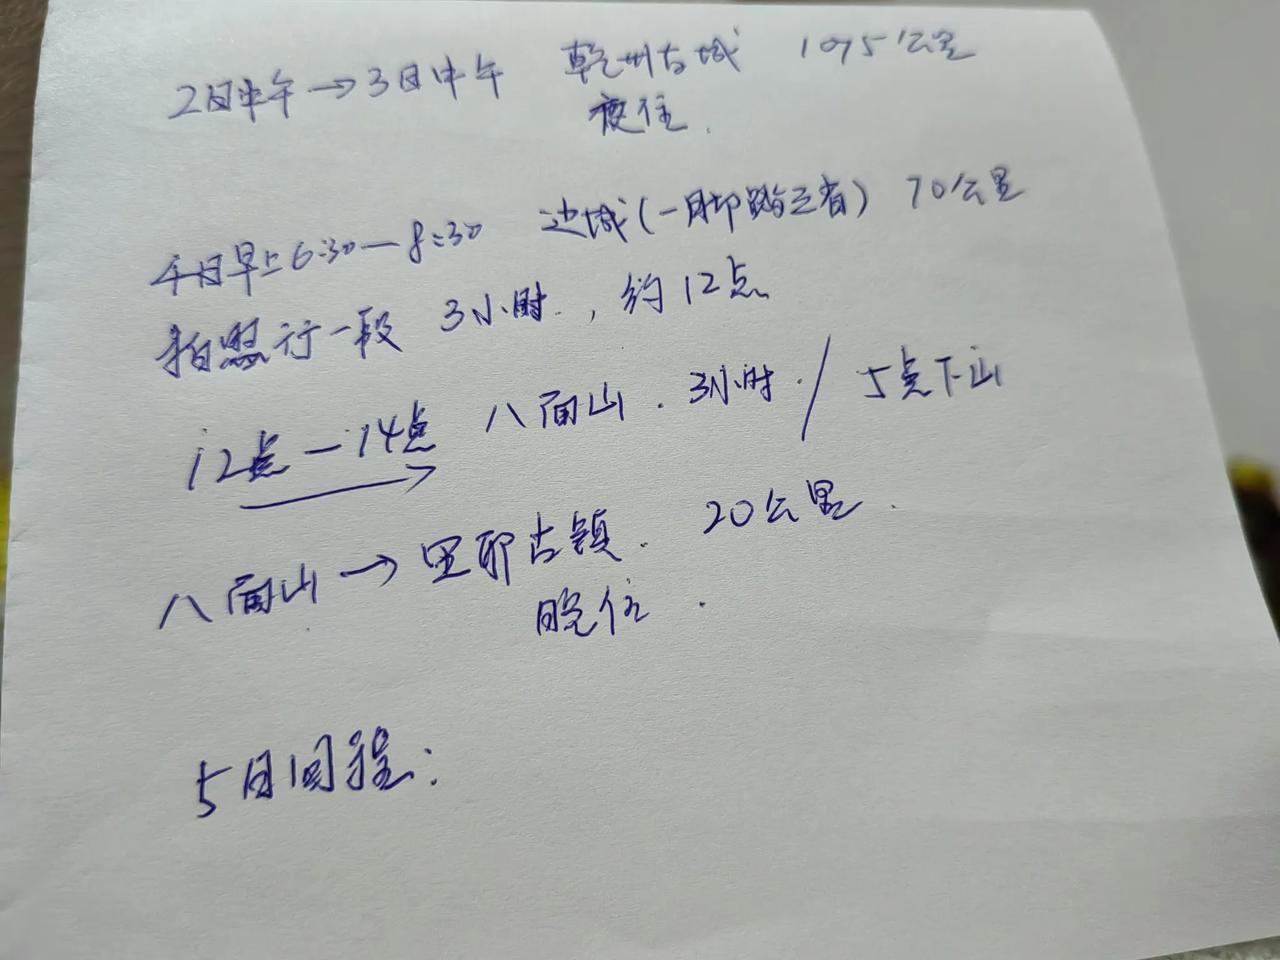 2日中午→3日中午 乾州古城 1075公里
夜住.
4日早上6:30—8:30 边城(一脚踏三省) 70公里
拍照行一段 3小时.,约12点
12点—14点 八面山.3小时./5点下山
八面山→里耶古镇. 20公里.
晚住.
5日回程: